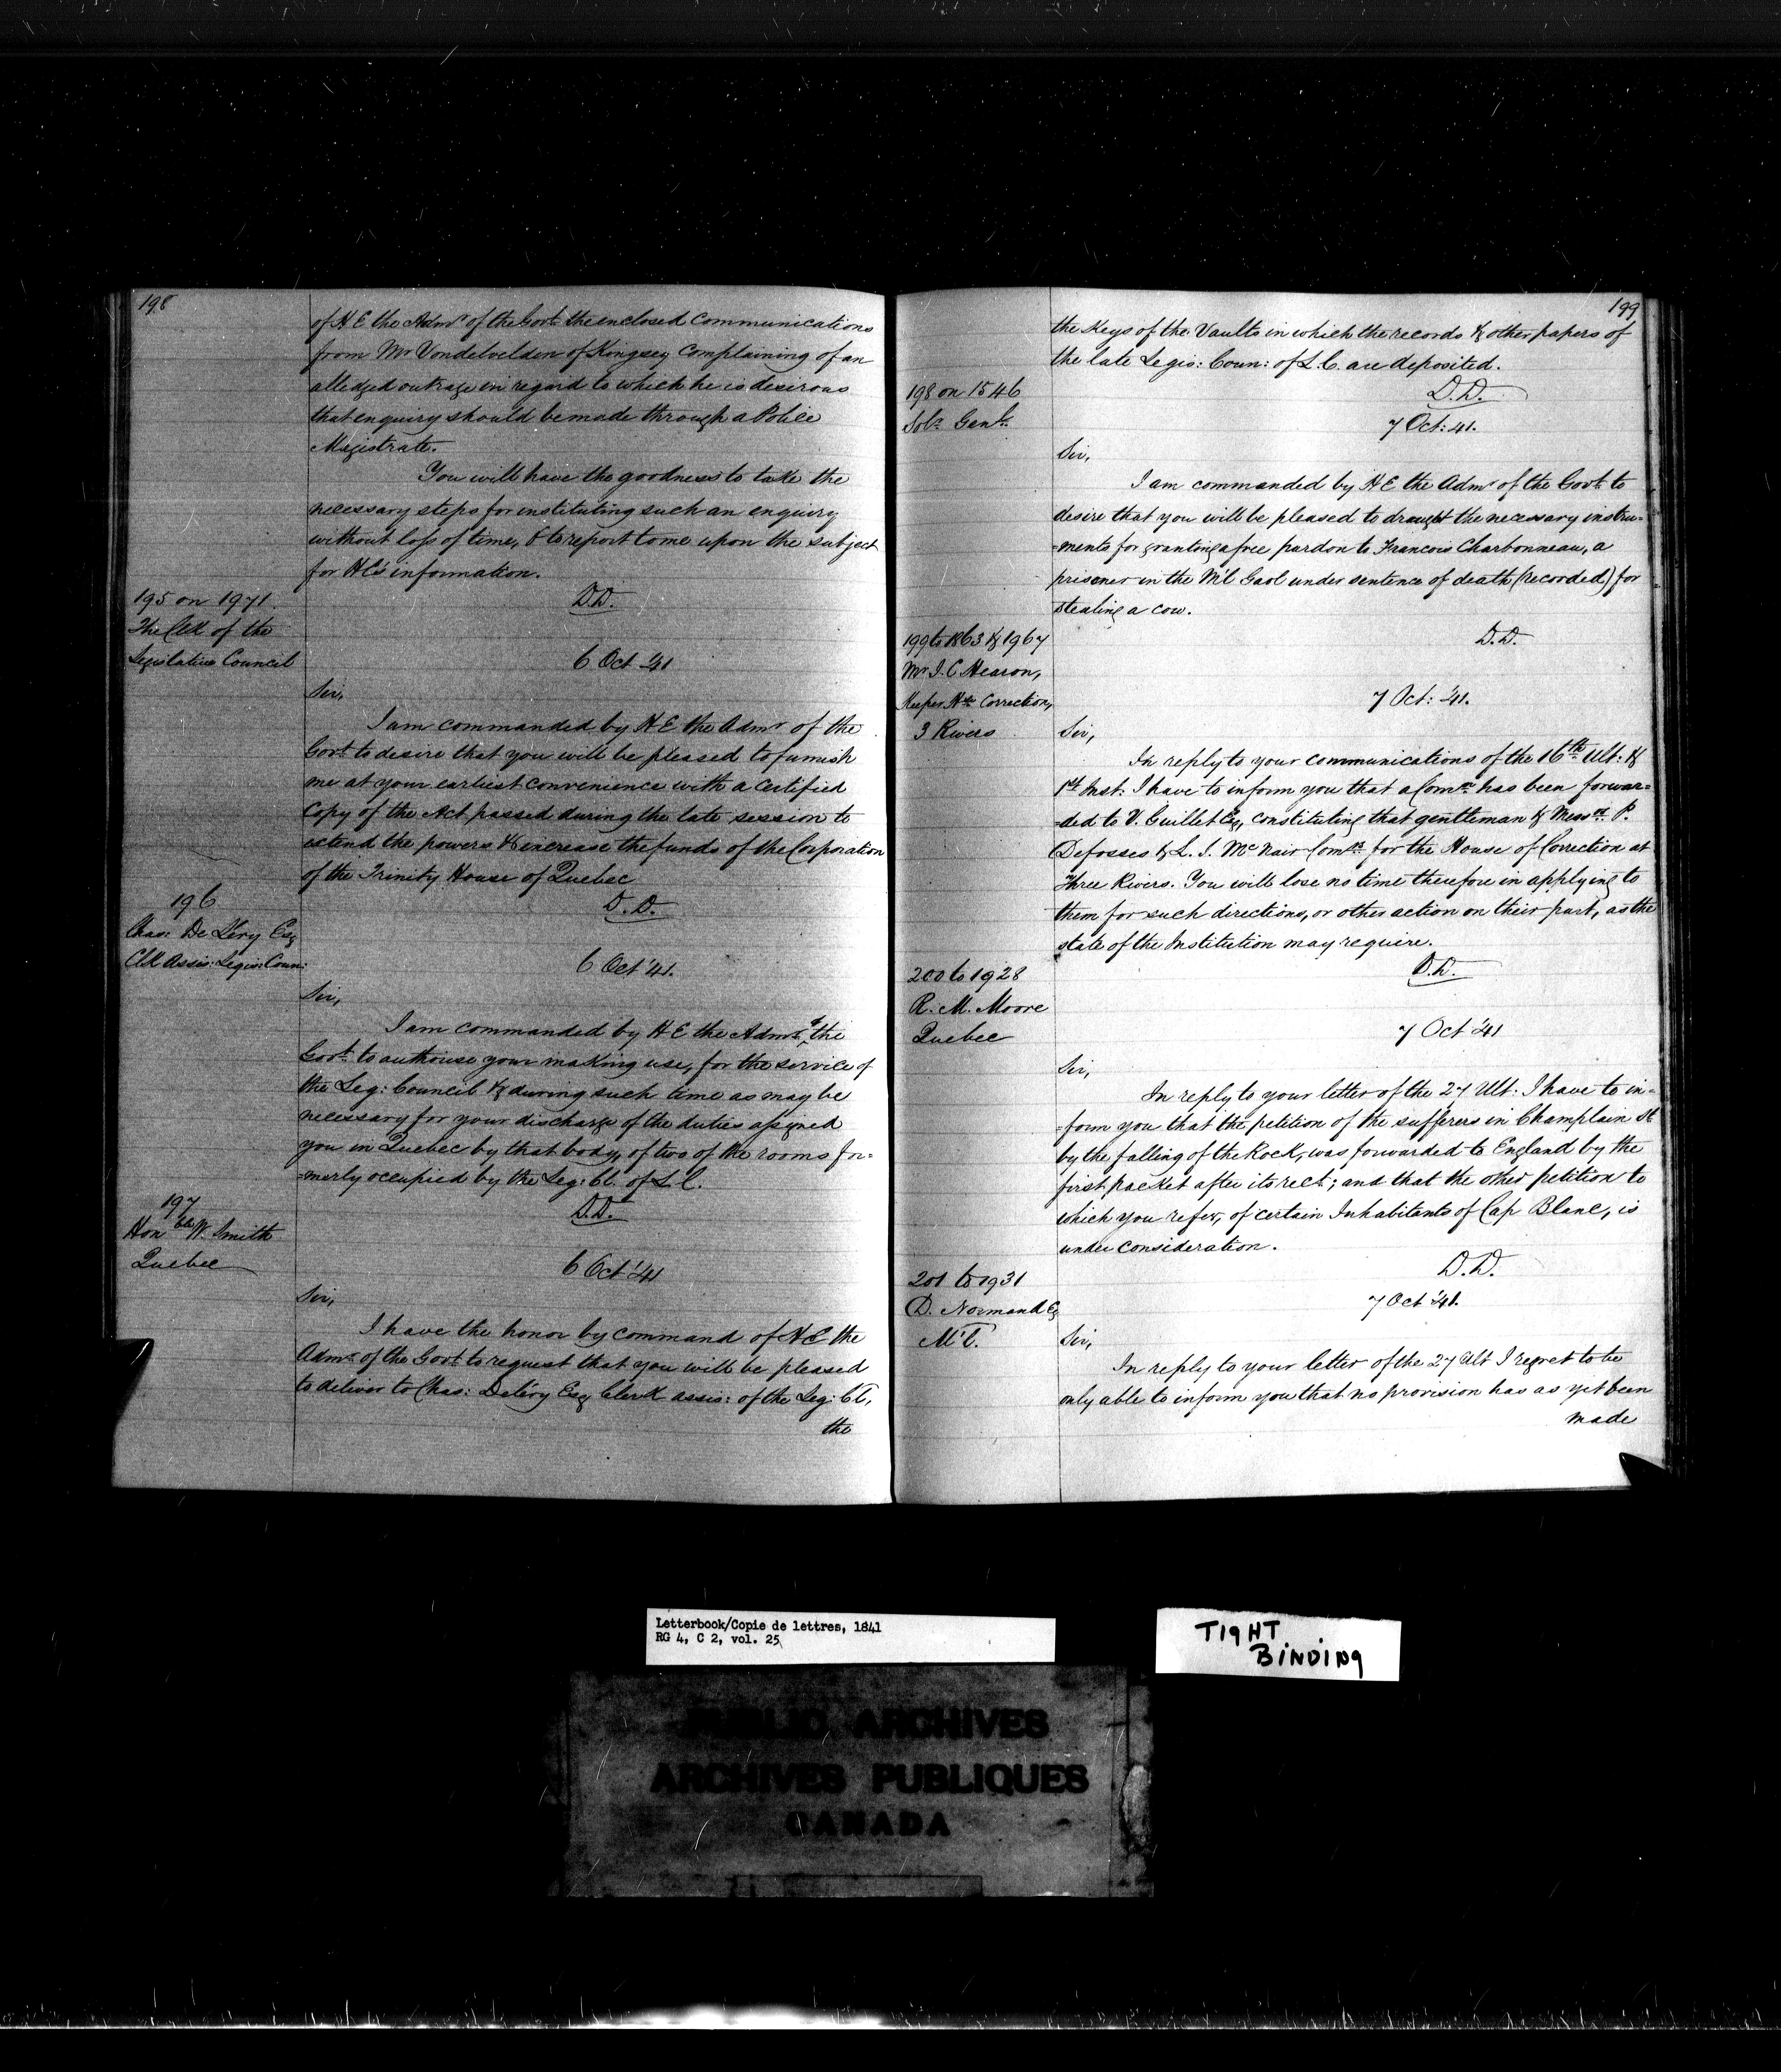 198
of H E the Admr of the Govt the enclosed communications
from Mr Vondelvelden of Kingsey complaining of an
alledged outrage in regard to which he is desirous
that enquiry should be made through a Police
Magistrate.
You will have the goodness to take the
necessary steps for instituting such an enquiry
without loss of time, & to report to me upon the subject
for HE's information.
D.D.
195 on 1971.
The Clk of the
Legislative Council
6 Oct '41
Sir,
I am commanded by H E the Admr of the
Govt to desire that you will be pleased to furnish
me at your earliest convenience with a certified
Copy of the Act passed during the late session to
extend the powers & increase the funds of the Corporation
of the Trinity House of Quebec
D.D.
196
Chas: De Léry Esq
Clk Assis: Legis: Coun:
6 Oct '41.
Sir,
I am commanded by H E the Admr of the
Govt to authorise your making use, for the service of
the Leg: Council & during such time as may be
necessary for your discharge of the duties assigned
you in Quebec by that body, of two of the rooms for=
=merly occupied by the Leg: Cl. of L.C.
D.D.
197
Honble W. Smith
Quebec
6 Oct '41
Sir,
I have the honor by command of H E the
Admr of the Govt to request that you will be pleased
to deliver to Chas: Deléry Esq Clerk assis: of the Leg: Cl,
the
199
the Keys of the Vaults in which the records & other papers of
the late Legis: Coun: of L.C. are deposited.
D.D.
198 on 1546
Solr Genl.
7 Oct: 41.
Sir,
I am commanded by H E the Admr of the Govt to
desire that you will be pleased to draught the necessary instru=
=ments for granting a free pardon to Francois Charbonneau, a
prisoner in the M'l Gaol under sentence of death (recorded) for
stealing a cow.
D.D.
199 to 1863 & 1967
Mr I. C Hearon,
Keeper Hse Correction,
3 Rivers
7 Oct: '41.
Sir,
In reply to your communications of the 16th Ult: &
1st Inst: I have to inform you that a Comn has been forwar=
=ded to V. Guillet Esq, constituting that gentleman & Messrs P.
Defosses & L. I. McNair Comrs for the House of Correction at
Three Rivers. You will lose no time therefore in applying to
them for such directions, or other action on their part, as the
state of the Institution may require.
D.D.
200 to 1928
R. M. Moore
Quebec
7 Oct '41
Sir,
In reply to your letter of the 27 Ult: I have to in=
=form you that the petition of the sufferers in Champlain St
by the falling of the Rock, was forwarded to England by the
first packet after its rect; and that the other petition to
which you refer, of certain Inhabitants of Cap Blanc, is
under consideration.
D.D.
201 to 1931
D. Normand Esq
M'l.
7 Oct '41.
Sir,
In reply to your letter of the 27 Ult I regret to be
only able to inform you that no provision has as yet been
made
Letterbook/Copie de lettres, 1841
RG 4, C 2, vol. 25
TIGHT
BINDING
PUBLIC ARCHIVES
ARCHIVES PUBLIQUES
CANADA